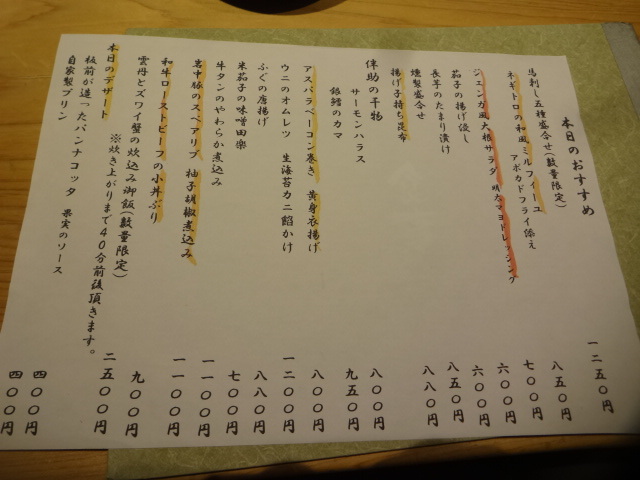 本日のおすすめ
馬刺し五種盛合せ(数量限定) 一二五〇円
ネギトロの和風ミルフィーユ アボカドフライ添え 八五〇円
ジェンガ風大根サラダ 明太マヨドレッシング 七〇〇円
茄子の揚げ浸し 六〇〇円
長芋のたまり漬け 六〇〇円
燻製盛合せ 八五〇円
揚げ子持ち昆布 八八〇円
伴助の干物
サーモンハラス 八〇〇円
銀鱈のカマ 九五〇円
アスパラベーコン巻き 黄身衣揚げ 八〇〇円
ウニのオムレツ 生海苔カニ餡かけ 一二〇〇円
ふぐの唐揚げ 八八〇円
米茄子の味噌田楽 七〇〇円
牛タンのやわらか煮込み 一一〇〇円
岩中豚のスペアリブ 柚子胡椒煮込み 一一〇〇円
和牛ローストビーフの小丼ぶり 九〇〇円
雲丹とズワイ蟹の炊込み御飯(数量限定) 二五〇〇円
※炊き上がりまで40分前後頂きます。
本日のデザート
板前が造ったパンナコッタ 果実のソース 四〇〇円
自家製プリン 四〇〇円